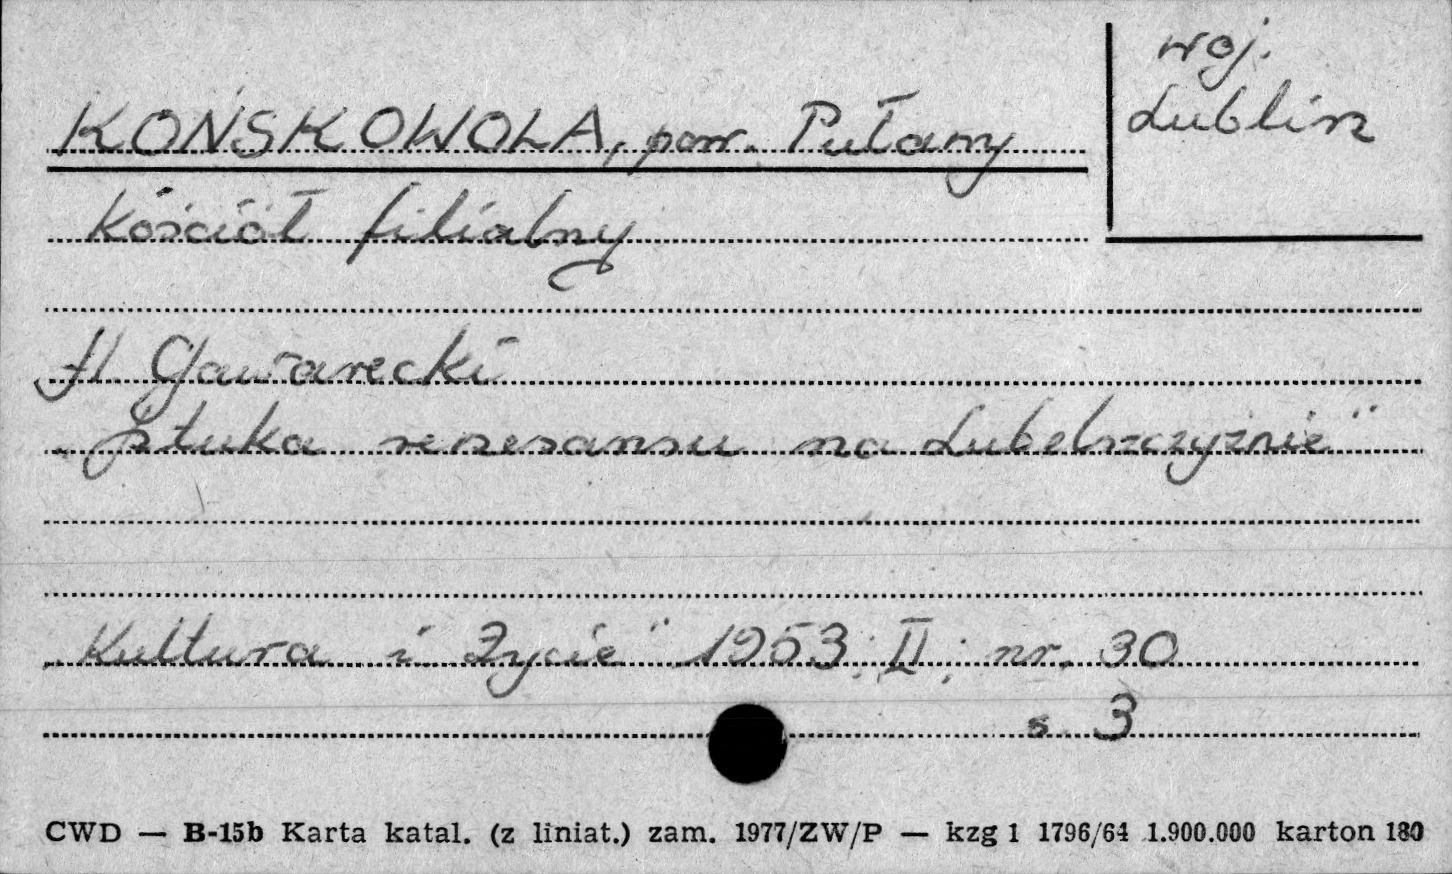 woj.
Lublin
KOŃSKOWOLA, pow. Puławy
Kościół filialny
H. Gawarecki
„Sztuka renesansu na Lubelszczyźnie"
„Kultura i Życie" 1953; II; nr. 30
s. 3
CWD — B-15b Karta katal. (z liniat.) zam. 1977/ZW/P — kzg 1 1796/64 1.900.000 karton 180